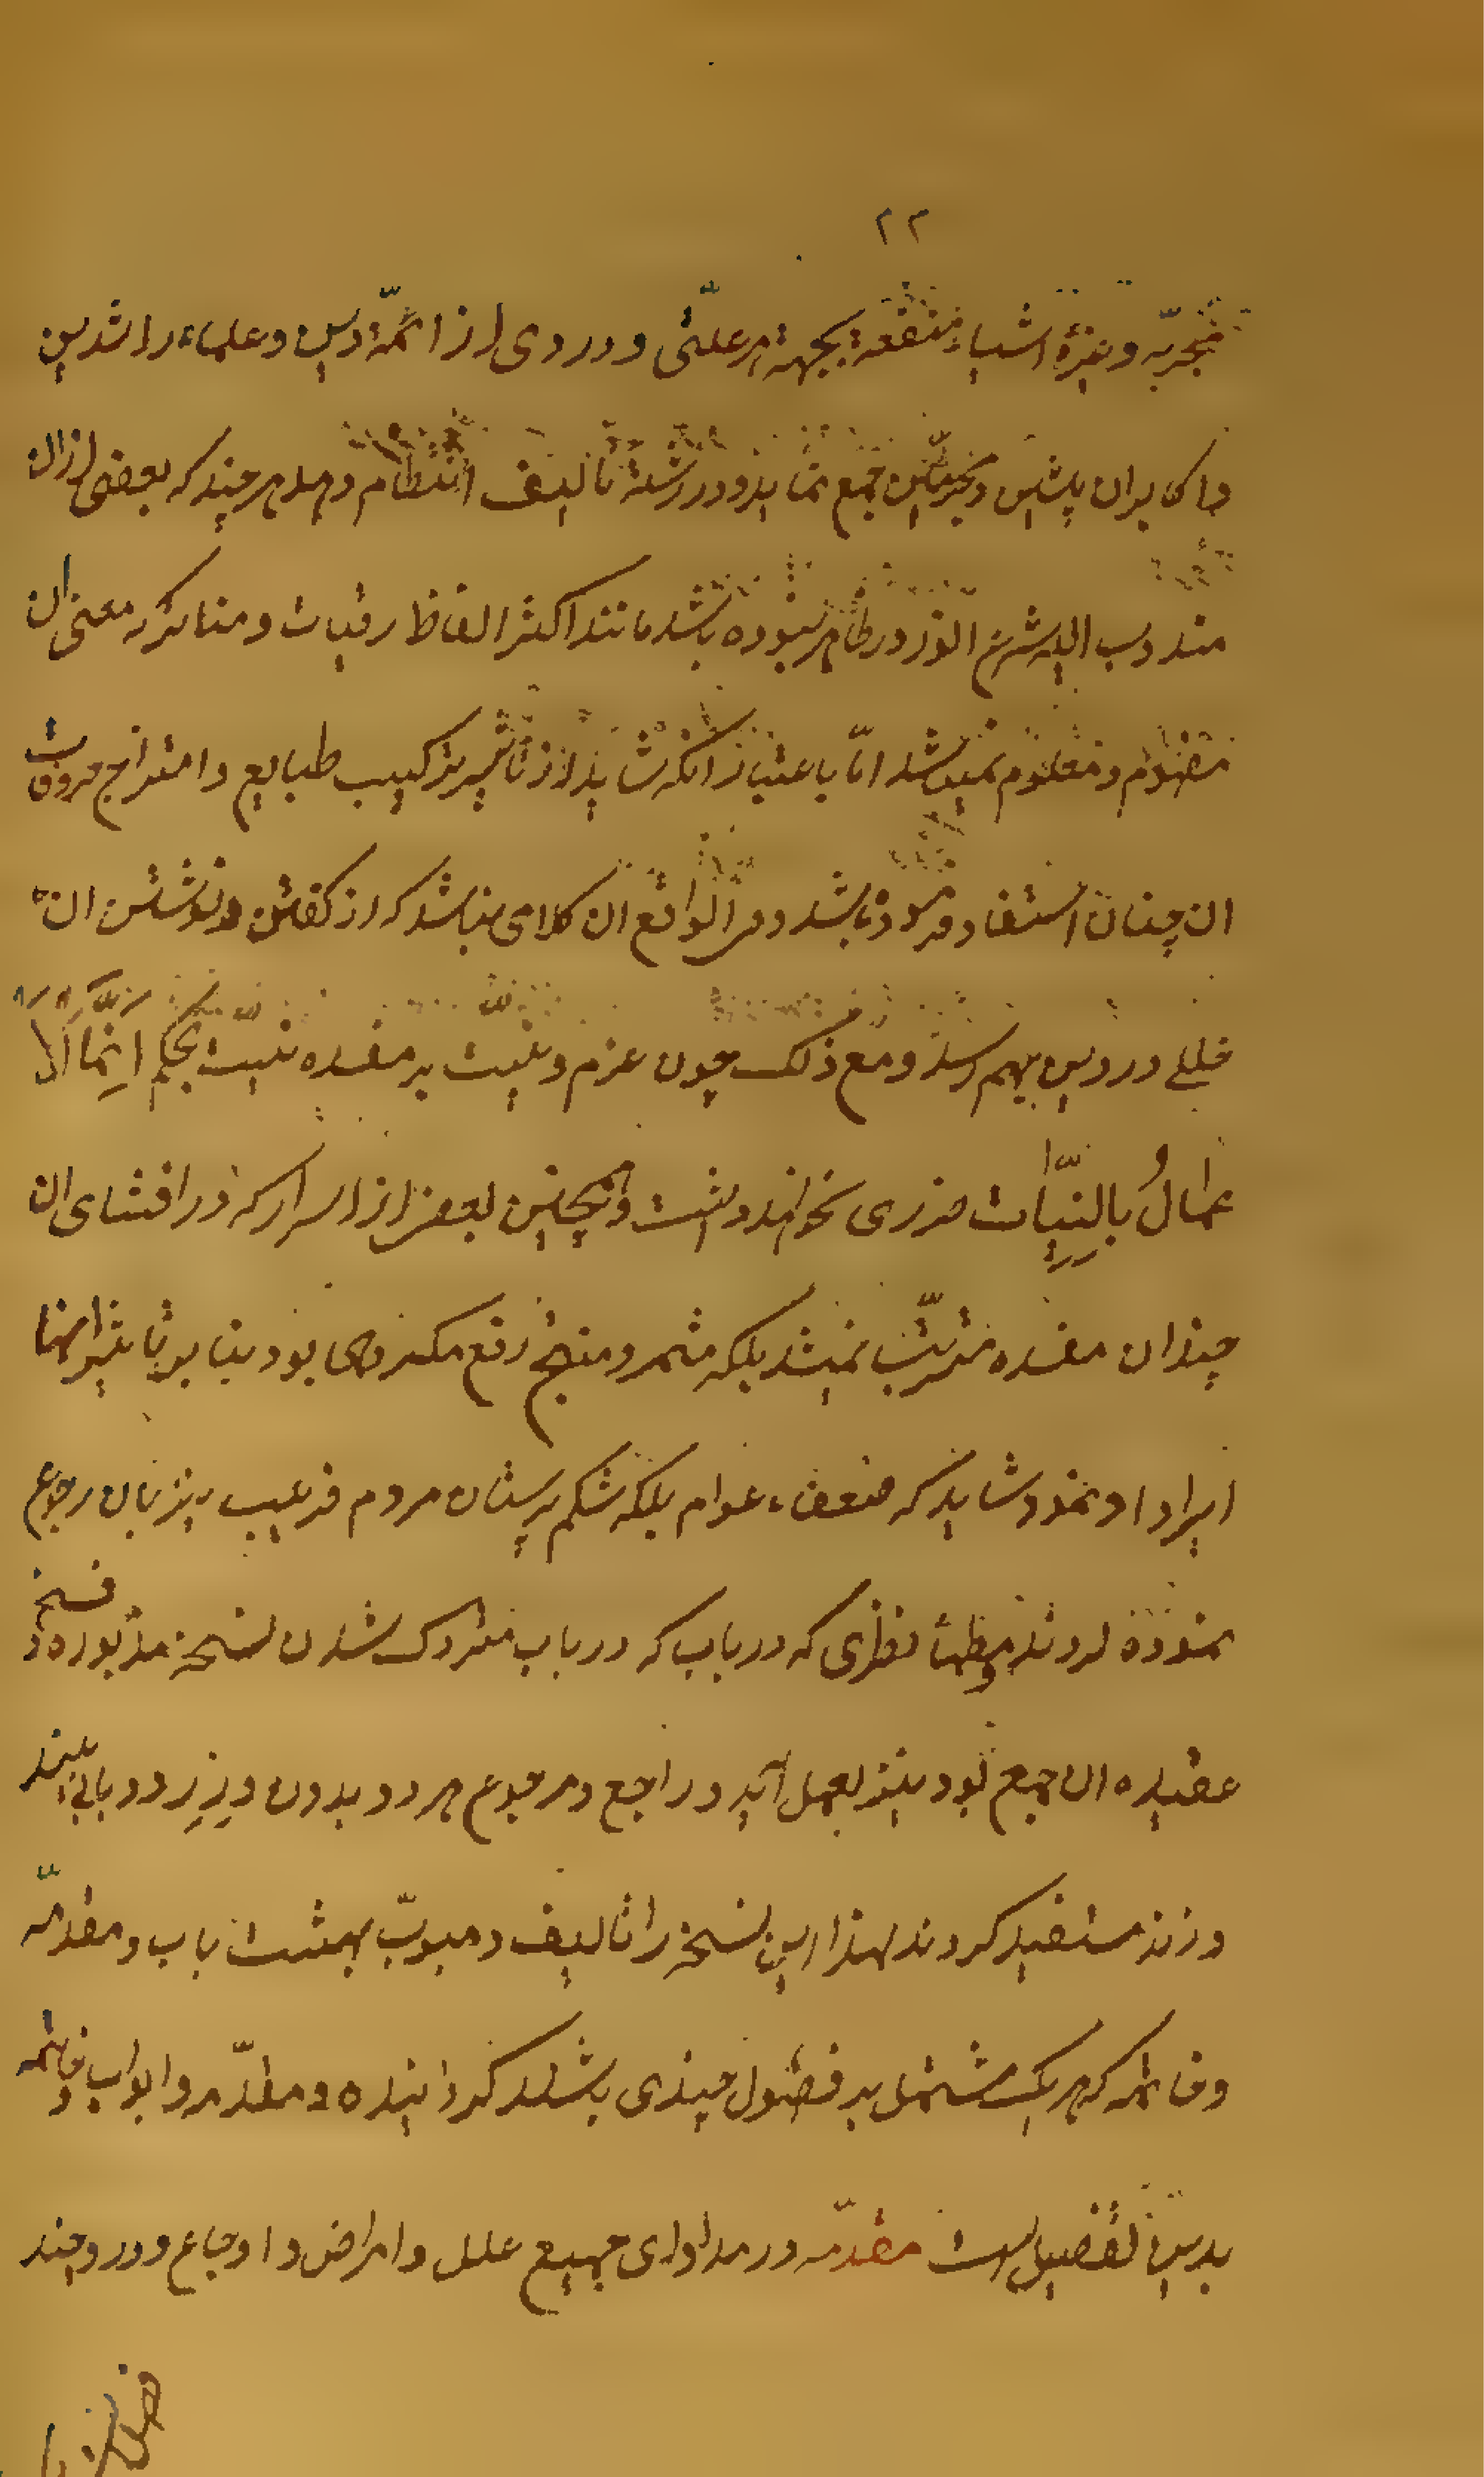 ۲۳
مجربه و غیره اشیاء منتفعه بجهة هر علتی و دردی از ائمّهٔ دین و علماء راشدین
و اکابران پیشین و مجربین جمع نماید و در رشتهٔ تألیف انتظام دهد هرچند که بعضی ازان
مندوب الیه شرع انور در ظاهر نبوده باشد مانند اکثر الفاظ رقیات و مناتر که معنی ان
مفهوم و معلوم نمیباشد امّا باعتبار آنکه شاید از تأثیر ترکیب طبایع و امتزاج حروفات
ان چنان استفاد فرموده باشد و فی الواقع ان کلامی نباشد که از گفتن و نوشتن ان
خللی در دین بهم رسد و مع ذلک چون عزم و نیّت بر مفسده نیست بحکم اِنَّمَا الْاَ
عمالُ بالنیّات ضرری نخواهد داشت و همچنین بعضی از اسرار که در افشای ان
چندان مفسده مترتّب نمیشد بلکه مثمر و منتج رفع مکروهی بود بنابر تأثیر انها
ایراد نمود شاید که ضعفاء عوام بلکه شکم پرستان مردم فریب بزبان رجوع
ننموده گردند مظهٔ نظری که در باب که در باب متروک شدن نسخهٔ مذبوره و فسخ
عقیده ان جمع بود نیز بعمل آید و راجع و مرجوع هر دو بدون وزر و وبالی بهره
ورزند مستفید گردند لهذا این نسخه را تالیف و مبوّب بهشت باب و مقدّمه
و خاتمه که هر یک مشتمل بر فصول چندی باشد گردانیده و مقدّمه و ابواب و خاتمه
بدین تفصیل است مقدّمه در مداوای جمیع علل و امراض و اوجاع و درو چند